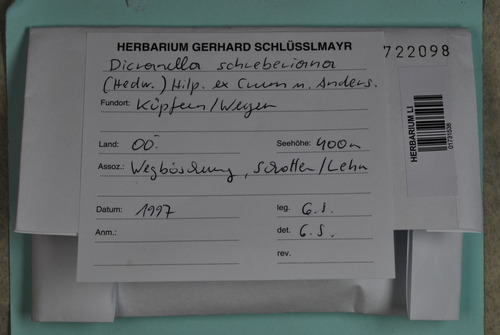 HERBARIUM GERHARD SCHLÜSSLMAYR
722098
Dicranella schreberiana
(Hedw.) Hilp. ex Crum u. Anders.
Fundort: Küpfern/Weyer
Land: OÖ.
Seehöhe: 400m
Assoz.: Wegböschung, Schotter/Lehm
Datum: 1997
leg. G.S.
Anm.:
det. G.S.
rev.
HERBARIUM LI
01731038